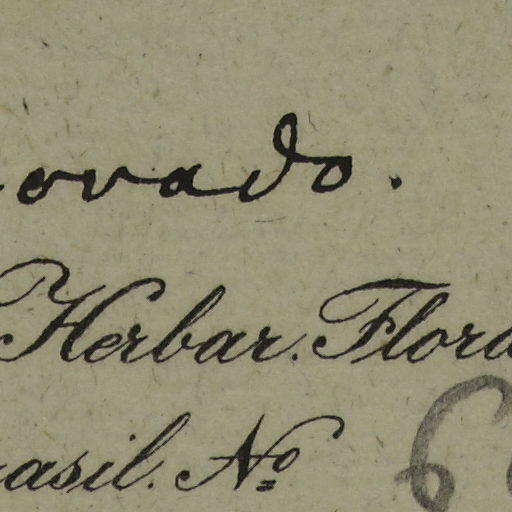 ovado.
Herbar. Flora
asil. Nº 6